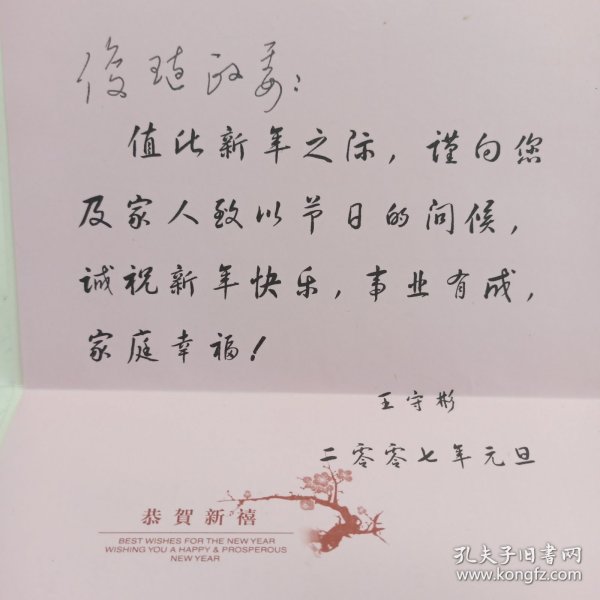 俊琏政委：
值此新年之际，谨向您
及家人致以节日的问候，
诚祝新年快乐，事业有成，
家庭幸福！
王守彬
二零零七年元旦
恭賀新禧
BEST WISHES FOR THE NEW YEAR
WISHING YOU A HAPPY & PROSPEROUS
NEW YEAR
孔夫子旧书网
www.kongfz.com